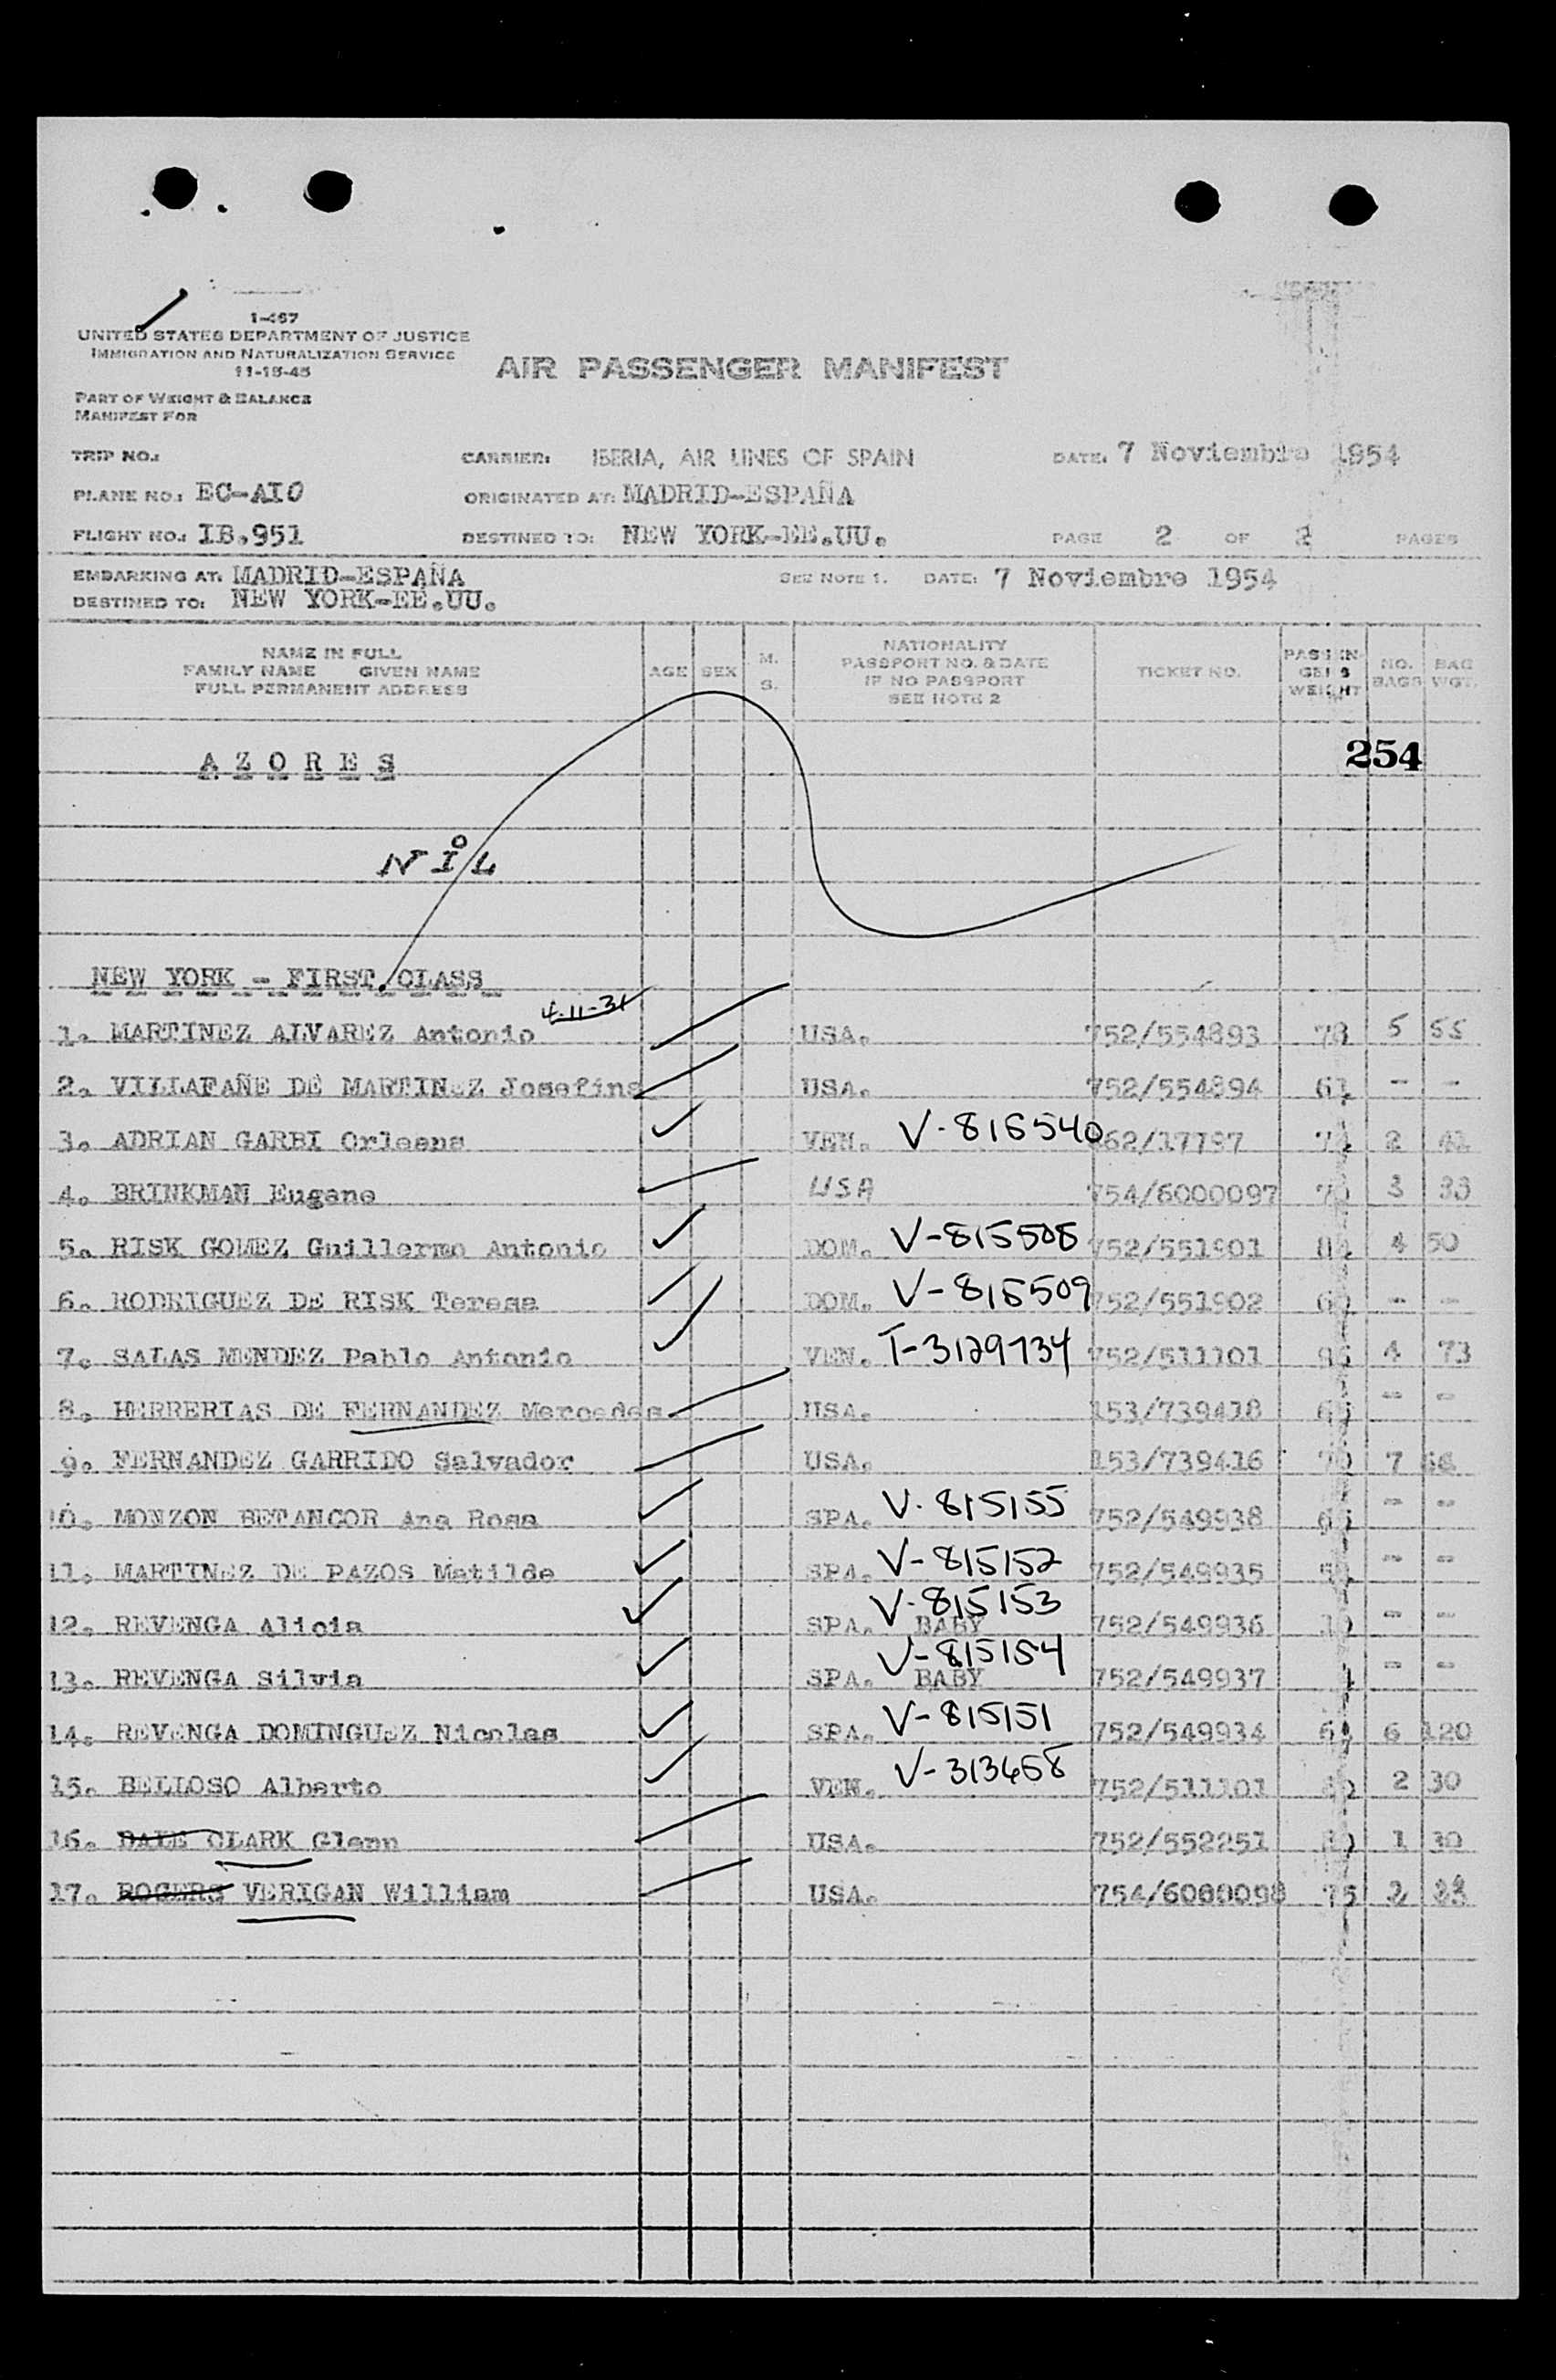 1-467
UNITED STATES DEPARTMENT OF JUSTICE
IMMIGRATION AND NATURALIZATION SERVICE
11-15-45
AIR PASSENGER MANIFEST
PART OF WEIGHT & BALANCE
MANIFEST FOR
TRIP NO.: CARRIER: IBERIA, AIR LINES OF SPAIN DATE: 7 Noviembre 1954
PLANE NO.: EC-AIO ORIGINATED AT: MADRID-ESPAÑA
FLIGHT NO.: IB.951 DESTINED TO: NEW YORK-EE.UU. PAGE 2 OF 2 PAGES
EMBARKING AT: MADRID-ESPAÑA SEE NOTE 1. DATE: 7 Noviembre 1954
DESTINED TO: NEW YORK-EE.UU.
NAME IN FULL
FAMILY NAME GIVEN NAME
FULL PERMANENT ADDRESS
AGE SEX M. S.
NATIONALITY
PASSPORT NO. & DATE
IF NO PASSPORT
SEE NOTE 2
TICKET NO.
PASSENGERS WEIGHT
NO. BAGS
BAG WGT.
AZORES 254
NIL
NEW YORK - FIRST CLASS
4-11-31
1. MARTINEZ ALVAREZ Antonio USA. 752/554893 78 5 55
2. VILLAFAÑE DE MARTINEZ Josefina USA. 752/554894 61 - -
3. ADRIAN GARBI Orleans VEN. V-816540 17787 2 41
4. BRINKMAN Eugene USA 754/6000097 70 3 33
5. RISK GOMEZ Guillermo Antonio DOM. V-815508 752/551901 4 50
6. RODRIGUEZ DE RISK Teresa DOM. V-815509 752/551902 60 - -
7. SALAS MENDEZ Pablo Antonio VEN. T-3129734 752/511101 4 73
8. HERRERIAS DE FERNANDEZ Mercedes USA. 153/739418 65 - -
9. FERNANDEZ GARRIDO Salvador USA. 153/739416 70 7
10. MONZON BETANCOR Ana Rosa SPA. V-815155 752/549938 - -
11. MARTINEZ DE PAZOS Matilde SPA. V-815152 752/549935 - -
12. REVENGA Alicia SPA. BABY V-815153 752/549936 - -
13. REVENGA Silvia SPA. BABY V-815154 752/549937 - -
14. REVENGA DOMINGUEZ Nicolas SPA. V-815151 752/549934 6 120
15. BELLOSO Alberto VEN. V-313468 752/511101 2 30
16. DALE CLARK Glenn USA. 752/552251 1 30
17. ROGERS VERIGAN William USA. 754/6000098 75